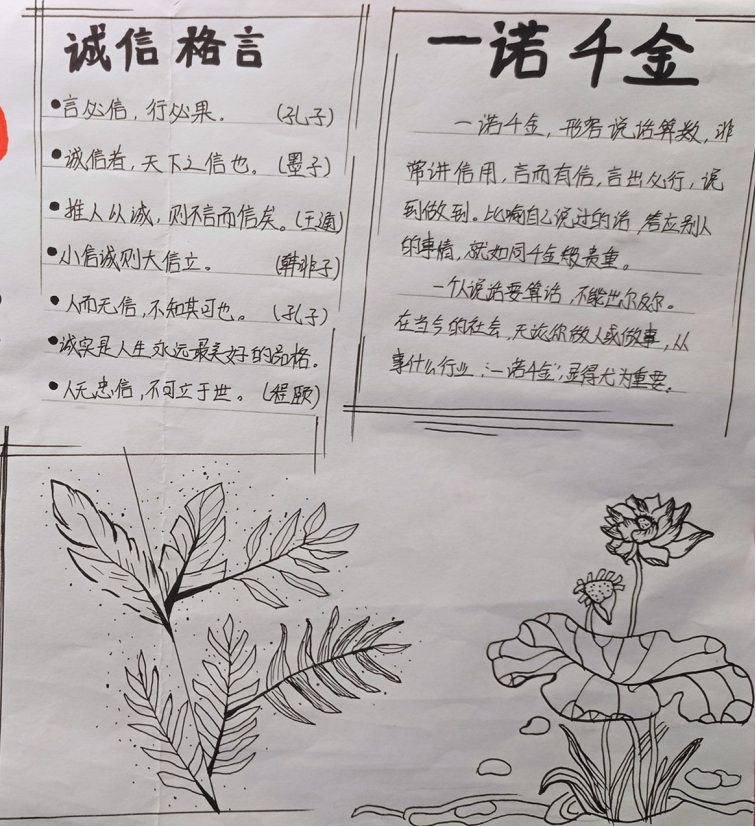 诚信格言
●言必信，行必果。 （孔子）
●诚信者，天下之信也。（墨子）
●推人以诚，则不言而信矣。（王通）
●小信诚则大信立。 （韩非子）
●人而无信，不知其可也。（孔子）
●诚实是人生永远最美好的品格。
●人无忠信，不可立于世。（程颐）
一诺千金
一诺千金，形容说话算数，非
常讲信用，言而有信，言出必行，说
到做到。比喻自己说过的话 答应别人
的事情，就如同千金般贵重。
一个人说话要算话，不能出尔反尔。
在当今的社会，无论你做人或做事，从
事什么行业，“一诺千金”，显得尤为重要。